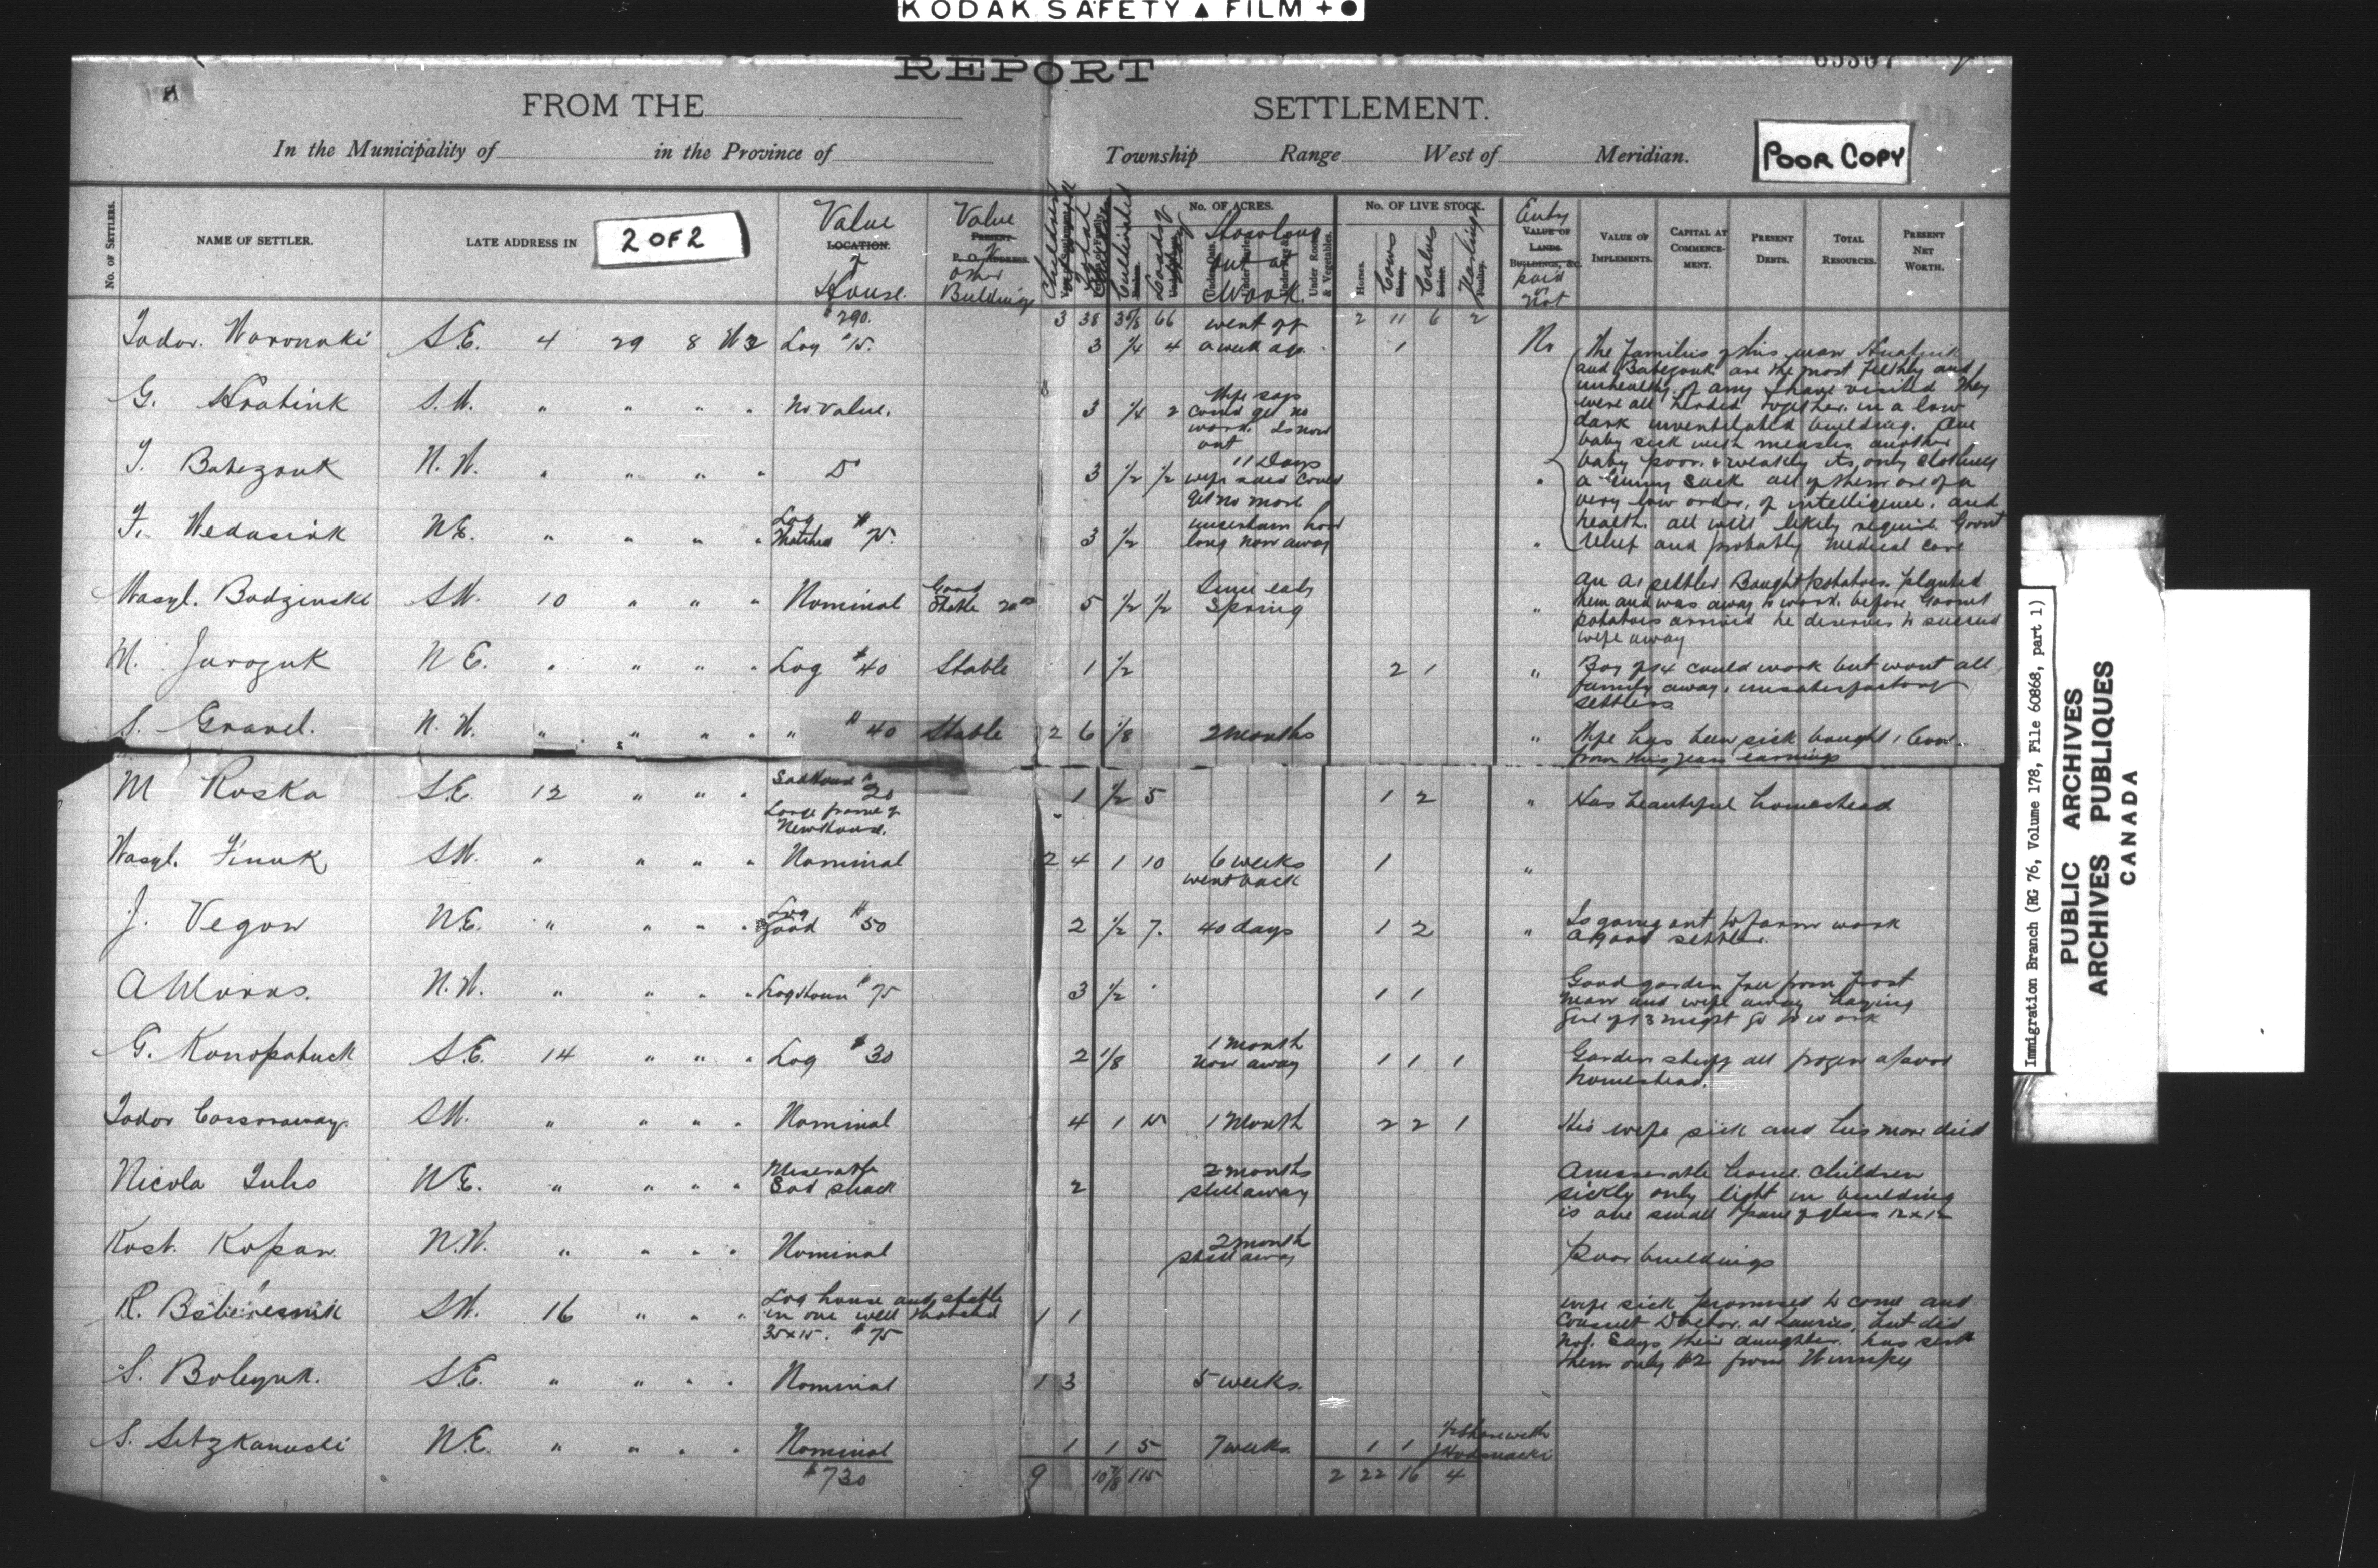 KODAK SAFETY ▲ FILM + ●
REPORT
FROM THE SETTLEMENT.
In the Municipality of in the Province of Township Range West of Meridian.
POOR COPY
No. OF SETTLERS.
NAME OF SETTLER.
LATE ADDRESS IN
2 OF 2
Value
LOCATION.
of
House.
Value
PRESENT
P. O. ADDRESS.
of
other
Buildings
Children
Total
Cultivated
Loads of
No. OF ACRES.
How long
out at
Work.
Under Roots & Vegetables.
No. OF LIVE STOCK.
Horses.
Cows
Calves
Yearlings
Entry
VALUE OF
LANDS
BUILDINGS, &c.
paid
or
not
VALUE OF IMPLEMENTS.
CAPITAL AT COMMENCE-MENT.
PRESENT DEBTS.
TOTAL RESOURCES.
PRESENT NET WORTH.
$290. 3 38 3 5/8 66 2 11 6 2
Todor. Woronuki S.E. 4 29 8 W2 Log $15. 3 1/4 4 went off a week ago. 1 No
The families of this man Hratink
and Babezouk are the most filthy and
unhealthy of any I have visited They
were all herded together in a low
dark unventilated building. One
baby sick with measles another
baby poor & weakly its only clothing
a Gunny Sack all of them are of a
very low order, of intelligence, and
health. all will likely require Govnt
relief and probably medical care
G. Hratink S.W. " " " " No Value. 3 1/4 2 Wife says
could get no
work. Is now
out
T. Babezouk N.W. " " " " Do 3 1/2 1/2 11 Days
wife said could
get no more "
F. Wedasink N.E. " " " " Log
Thatched $75. 3 1/2 uncertain how
long now away "
Wasyl. Bodzinski S.W. 10 " " " Nominal Good
Stable 20 00 5 1/2 1/2 Since early
Spring "
An A1 settler Bought potatoes planted
them and was away to work before Govnt
potatoes arrived he deserves to succeed
wife away
M. Jurozuk N.E. " " " " Log $40 Stable 1 1/2 2 1 "
Boy of 14 could work but wont all
family away, unsatisfactory
settlers
S. Gravel. N.W. " " " " " $40 Stable 2 6 1/8 2 months "
Wife has been sick bought 1 Cow
from this years earnings
M Ruska S.E. 12 " " " Sod House $20
Large frame of
New House. 1 1/2 5 1 2 " Has beautiful homestead
Wasyl. Finuk S.W. " " " " Nominal 2 4 1 10 6 weeks
went back 1 "
J. Vegow N.E. " " " " Log
Good $50 2 1/2 7. 40 days 1 2 "
Is going out to farm work
A good settler.
A Woras. N.W. " " " " Log House $75 3 1/2 1 1
Good garden free from frost
man and wife away haying
Girl of 13 might go to work
G. Konopatuck S.E. 14 " " " Log $30 2 1/8 1 month
now away 1 1 1
Garden stuff all frozen a poor
homestead.
Todor S.W. " " " " Nominal 4 1 15 1 Month 2 2 1 His wife sick and his mare died
Nicola Tuhs N.E. " " " " Miserable
Sod shack 2 2 months
still away
A miserable home. Children
sickly only light in building
is one small pane of glass 12x12
Kost. Kopan. N.W. " " " " Nominal 2 month
still away Poor buildings
R. S.W. 16 " " " Log house and stable
in one well thatched
35x15. $75 1 1
wife sick promised to come and
consult Doctor. at Lauries, but did
not. Says their daughter has sent
them only $2 from Winnipeg
S. Boleyuk. S.E. " " " " Nominal 1 3 5 weeks.
S. Sitzkanuski N.E. " " " " Nominal 1 1 5 7 weeks. 1 1 1/2 share with
J
$730 9 10 7/8 115 2 22 16 4
Immigration Branch (RG 76, Volume 178, File 60868, part 1)
PUBLIC ARCHIVES
ARCHIVES PUBLIQUES
CANADA